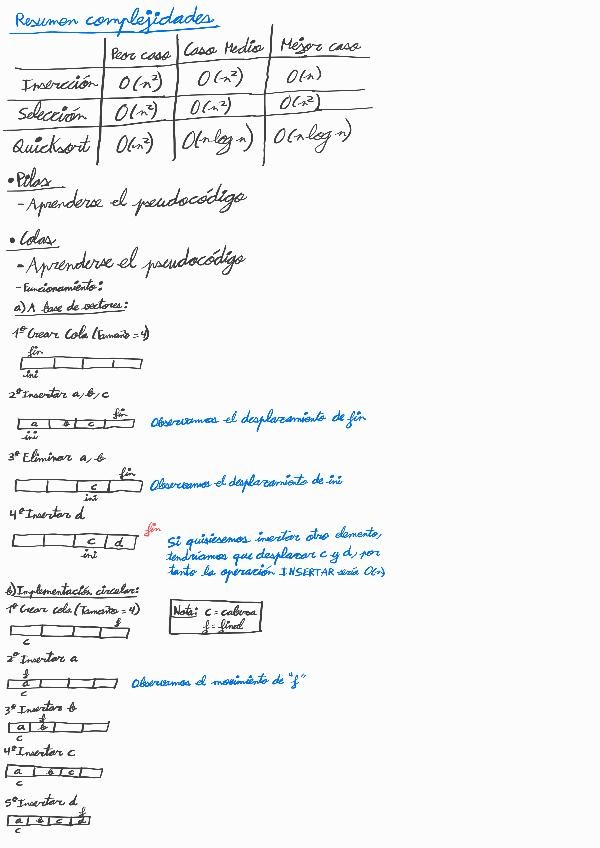 Resumen complejidades
Peor caso Caso Medio Mejor caso
Inserción O(n²) O(n²) O(n)
Selección O(n²) O(n²) O(n²)
Quicksort O(n²) O(n log n) O(n log n)
• Pilas
- Aprenderse el pseudocódigo
• Colas
- Aprenderse el pseudocódigo
- Funcionamiento:
a) A base de vectores:
1º Crear Cola (Tamaño = 4)
fin
ini
2º Insertar a, b, c
fin
a b c Observamos el desplazamiento de fin
ini
3º Eliminar a, b
fin
c Observamos el desplazamiento de ini
ini
4º Insertar d
fin
c d Si quisiesemos insertar otro elemento,
ini tendríamos que desplazar c y d, por
tanto la operación INSERTAR sería O(n)
b) Implementación circular:
1º Crear cola (Tamaño = 4) Nota: c = cabeza
f f = final
c
2º Insertar a
f
a Observamos el movimiento de "f"
c
3º Insertar b
f
a b
c
4º Insertar c
a b c
c
5º Insertar d
f
a b c d
c